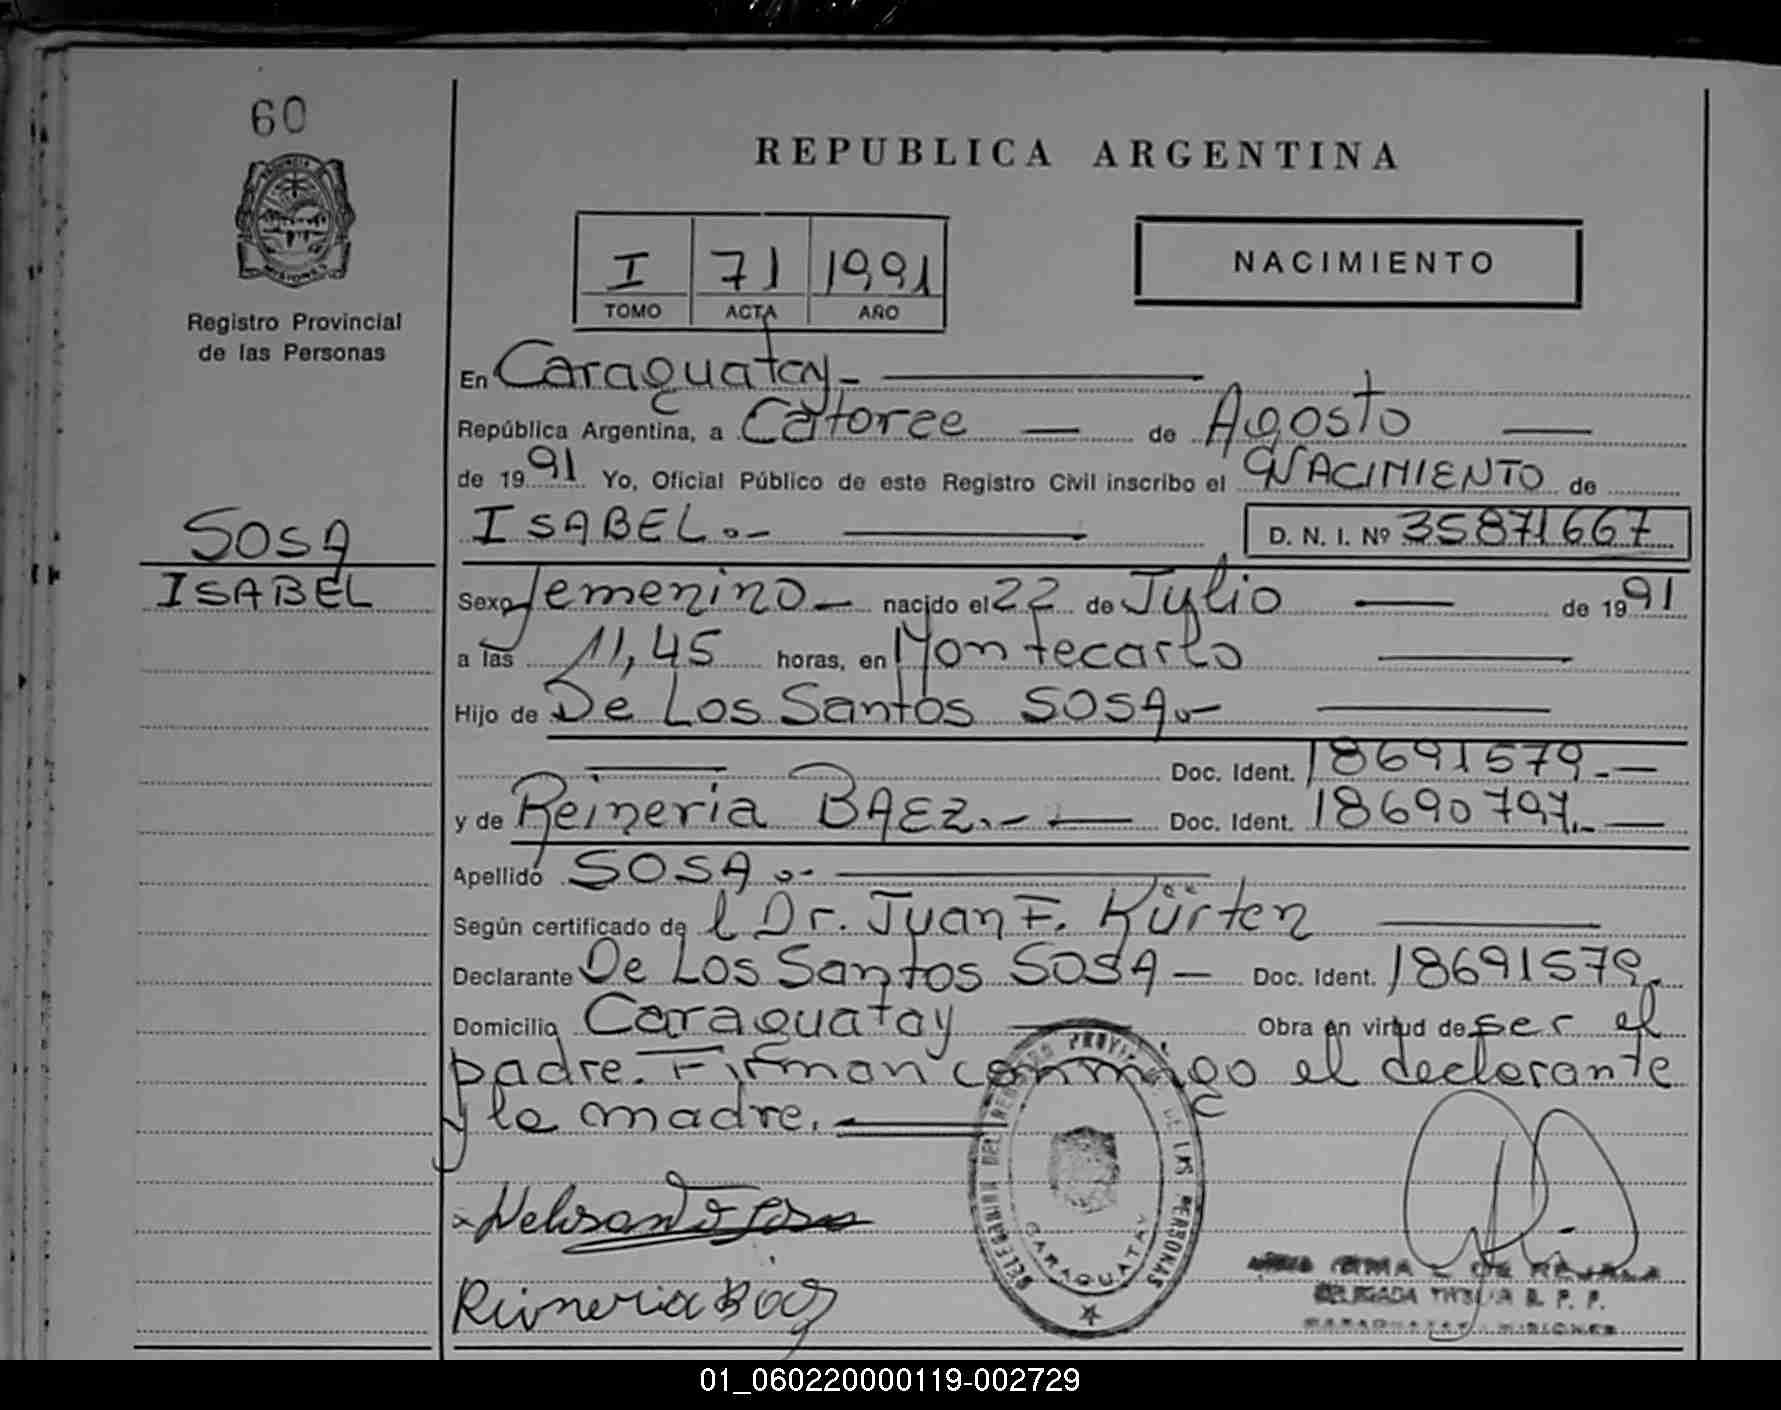 60
REPUBLICA ARGENTINA
MISIONES
Registro Provincial
de las Personas
I 71 1991
TOMO ACTA AÑO
NACIMIENTO
En Caraguatay.-
República Argentina, a Catorce — de Agosto —
de 1991 Yo, Oficial Público de este Registro Civil inscribo el NACIMIENTO de
ISABEL.- D. N. I. Nº 35871667
SOSA
ISABEL
Sexo femenino - nacido el 22 de Julio — de 1991
a las 11,45 horas, en Montecarlo —
Hijo de De Los Santos SOSA.- —
— Doc. Ident. 18691579.-
y de Reineria BAEZ.- — Doc. Ident. 18690797.-
Apellido SOSA.-
Según certificado de l Dr. Juan F. Kürten —
Declarante De Los Santos SOSA - Doc. Ident. 18691579.
Domicilio Caraguatay — Obra en virtud de ser el
padre. Firman conmigo el declarante
y la madre.
DELEGACION DEL REGISTRO PROVINCIAL DE LAS PERSONAS
CARAGUATAY
Reineria Báez
IRMA DE
DELEGADA TITULAR R. P. P.
CARAGUATAY - MISIONES
01_060220000119-002729